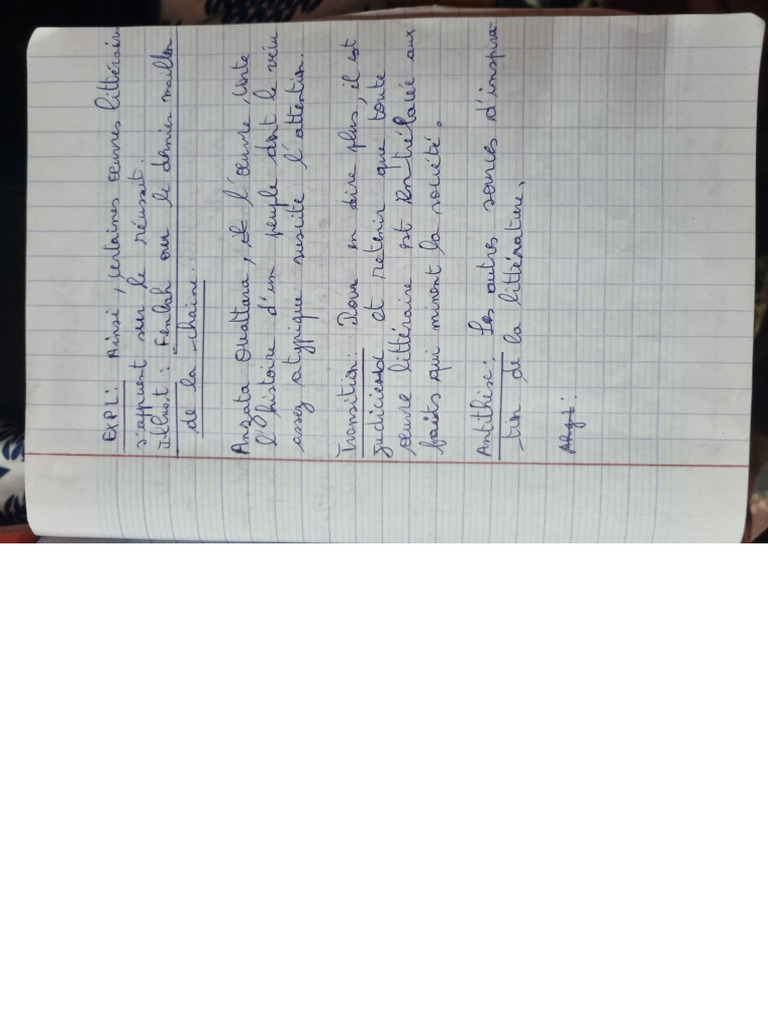 EXPL: Ainsi, certaines œuvres littéraires
s'appuent sur le réussit.
illust: Fenlah ou le dernier maillon
de la chaine.
Anzata Ouattara, il l'œuvre, liste
l'histoire d'un peuple dont le vécu
assez atypique suscite l'attention.
Transition: Pour en dire plus, il est
judicieux et retenir que toute
œuvre littéraire est entrélacée aux
faits qui minent la société.
Antithèse: Les autres sources d'inspira-
tion de la littérature.
Arg: